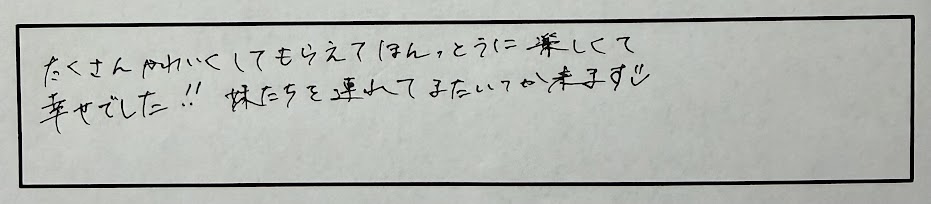 たくさんかわいくしてもらえてほんっとうに楽しくて
幸せでした!! 妹たちを連れてまたいつか来ます